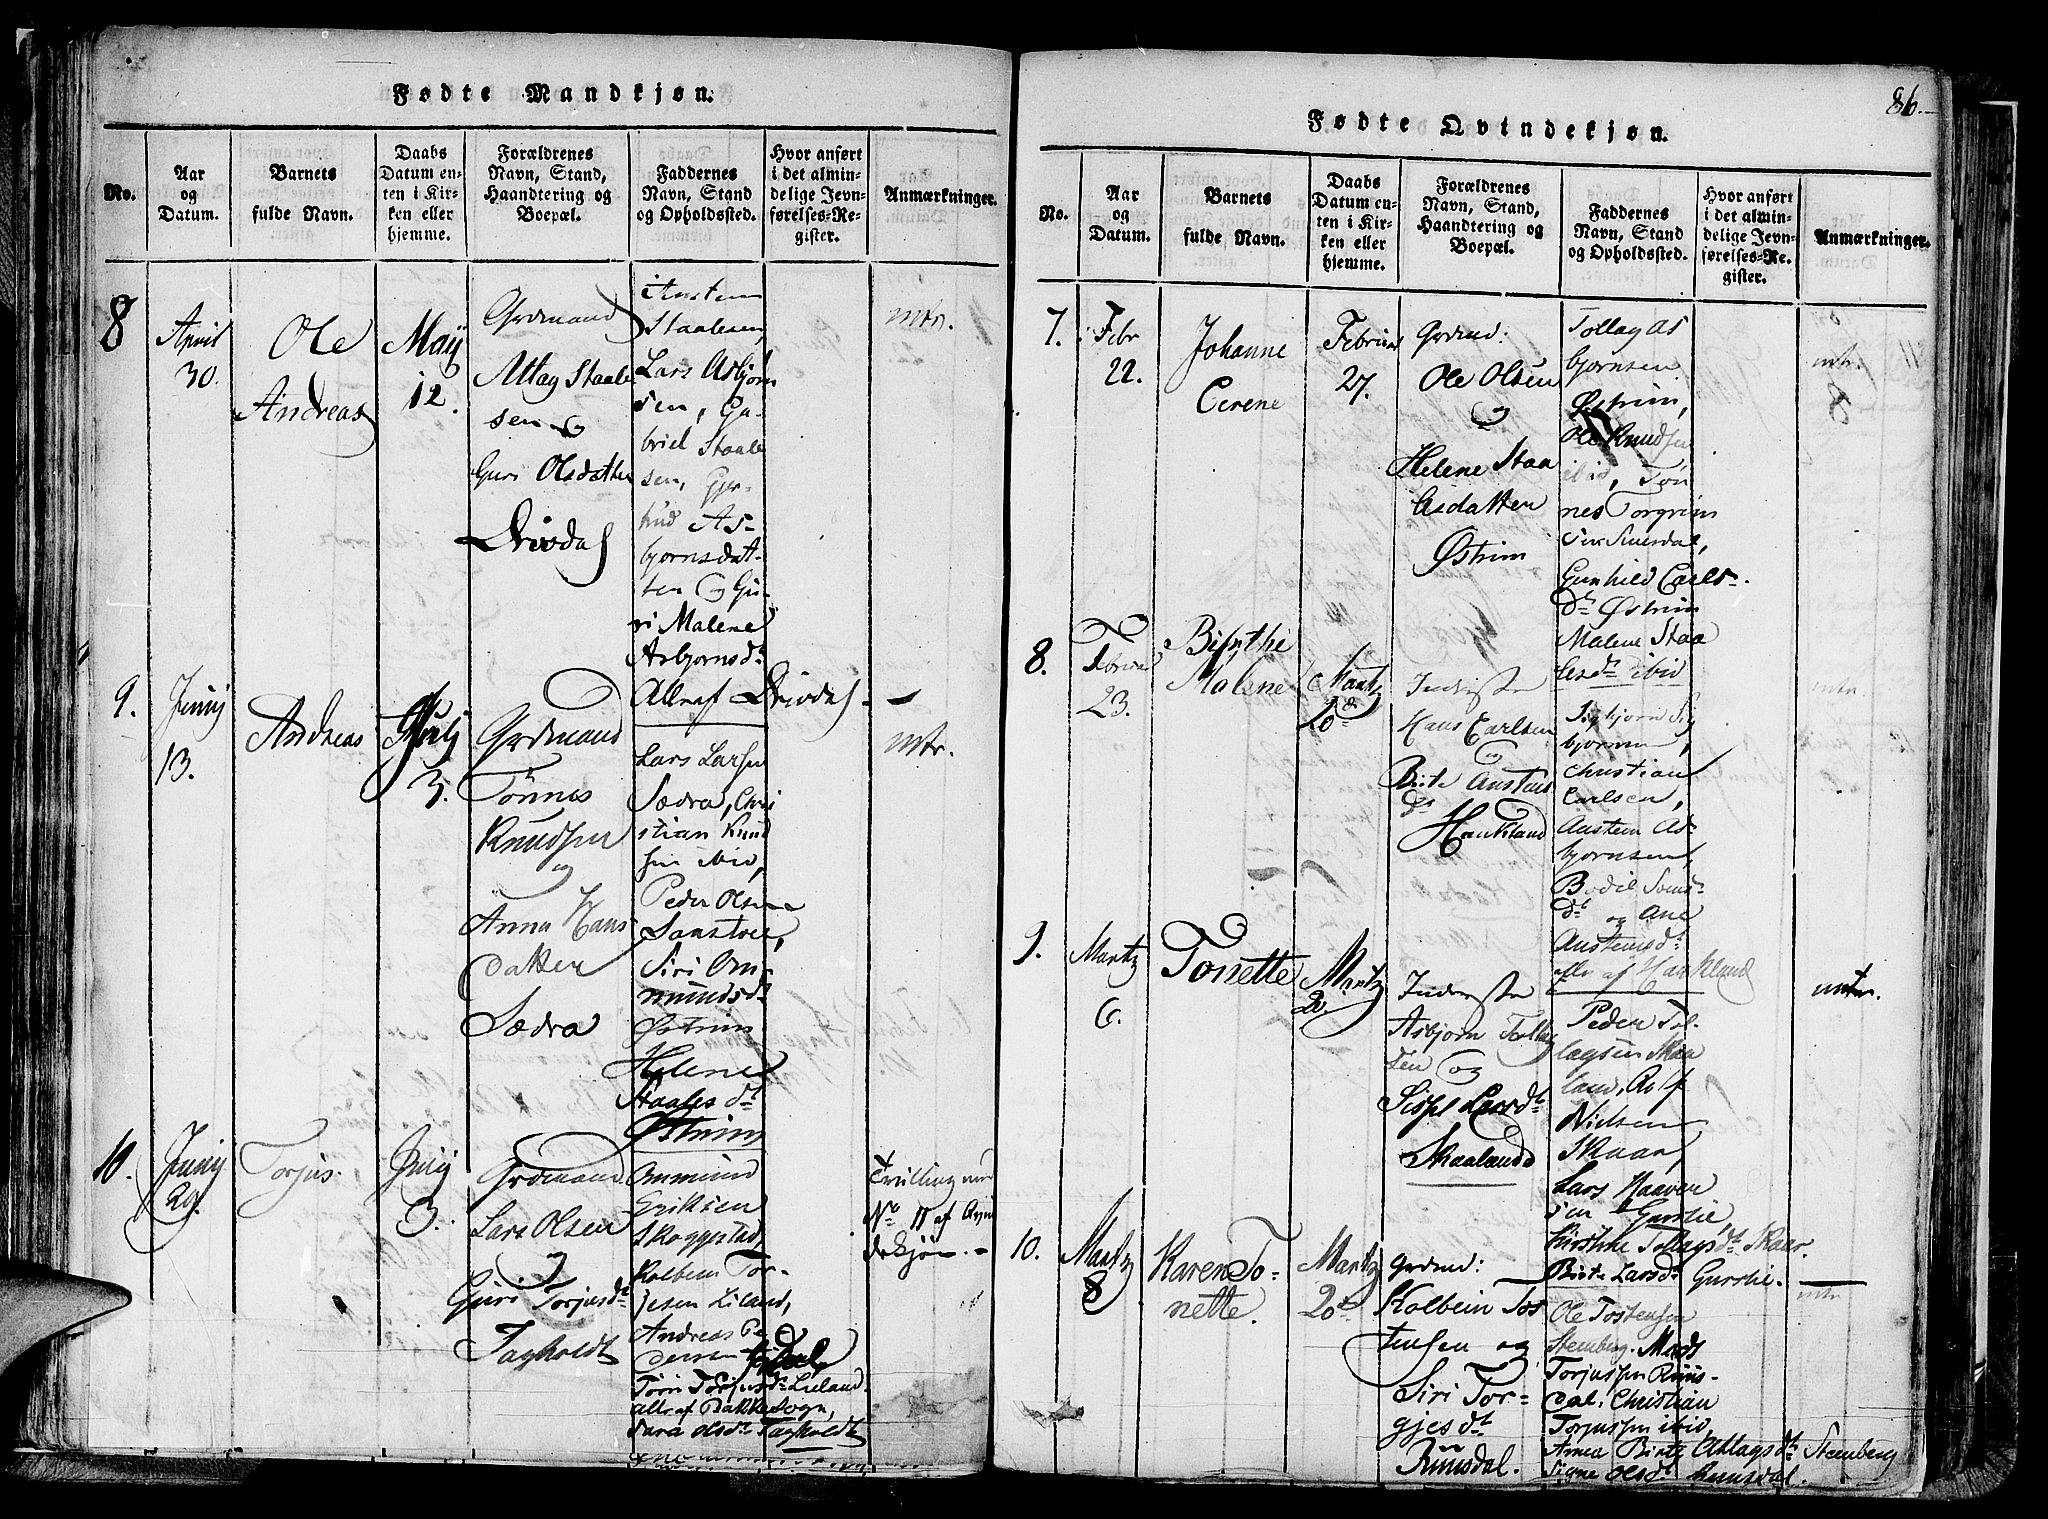 Fødte Mandkjøn.
No.
Aar
og
Datum.
Barnets
fulde Navn.
Daabs
Datum en-
ten i Kir-
ken eller
hjemme.
Forældrenes
Navn, Stand,
Haandtering og
Boepæl.
Faddernes
Navn, Stand
og Opholdssted.
Hvor anført
i det almin-
delige Jevn-
førelses-Re-
gister.
Anmærkninger.
8
April
30.
Ole
Andreas
Maij
12.
Grdmand
Atlag Staale
sen og
Guri Olsdatter
Drivdal
Austen
Staalesen,
Lars Asbjørn
sen, Ga-
briel Staale
sen, Gjer-
trud As-
bjørnsdat-
ter og Gu-
ri Malene
Asbjørnsdt
Alle af Drivdal
mtr.
9.
Junij
13.
Andreas
Julij
3.
Grdmand
Tönnes
Knudsen
og
Anna Hans
datter
Sædra
Lars Larsen
Sædra, Chri
stian Knud
sen ibid,
Peder Olsen
Siri Om-
mundsdt
Østrim
Helene
Staalesdt
Østrim
mtr.
10.
Junij
29.
Torjus.
Julij
3.
Grdmand
Lars Olsen
og
Guri Torjusdt
Ommund
Eriksen
Skoggestad,
Kolben Tor-
jesen Liland,
Andreas Pe
dersen
Töri Torjusdt Lieland
alle af Bakke Sogn,
Sara Olsdt
Tvilling med
No 11 af Qvin
dekjøn.
86.
Fødte Qvindekjøn.
No.
Aar
og
Datum.
Barnets
fulde Navn.
Daabs
Datum en-
ten i Kir-
ken eller
hjemme.
Forældrenes
Navn, Stand,
Haandtering og
Boepæl.
Faddernes
Navn, Stand
og Opholdssted.
Hvor anført
i det almin-
delige Jevn-
førelses-Re-
gister.
Anmærkninger.
7.
Febr
22.
Johanne
Cerene
Februar
27.
Grdmd:
Ole Olsen
og
Helene Staa
lesdatter
Østrim
Tollag As
bjørnsen
Østrim,
Ole Knudsen
ibid, Tön
nes Torgrim
sen
Gunhild Carls-
dt Østrim
Malene Staa
lesdt ibid
mtr.
8
8.
23.
Birthe
Malene
Martz
20
Inderste
Hans Carlsen
og
Birte Austens
dt
Haukland
Sigbjørn Sig
bjørnsen,
Christian
Carlsen,
Austen As
bjørnsen,
Bodil
dt og Ane
Austensdt
alle af Haukland
mtr.
9.
Martz
6.
Tonette
Martz
20.
Inderste
Asbjørn Tollag
sen og
Larsdt
Skaaland
Peder Tol-
lagsen Skaa
land, Rolf
Nielsen
Skaar,
Lars Haaver
sen Gurslie
Kirsthe Tollagsdt Skaar.
Birte Larsdt Gurslie.
mtr.
10.
Martz
8
Karen To-
nette.
Martz
20de
Grdmd:
Kolbein Tos
tensen og
Siri Tor-
gjesdt
Rünsdal.
Ole Tostensen
Stemberg. Mads
Torjussen Rüns-
dal. Christian
Torjussen ibid,
Anna Birte Atlagsdt Stemberg
Signe Olsdt Runsdal.
mtr